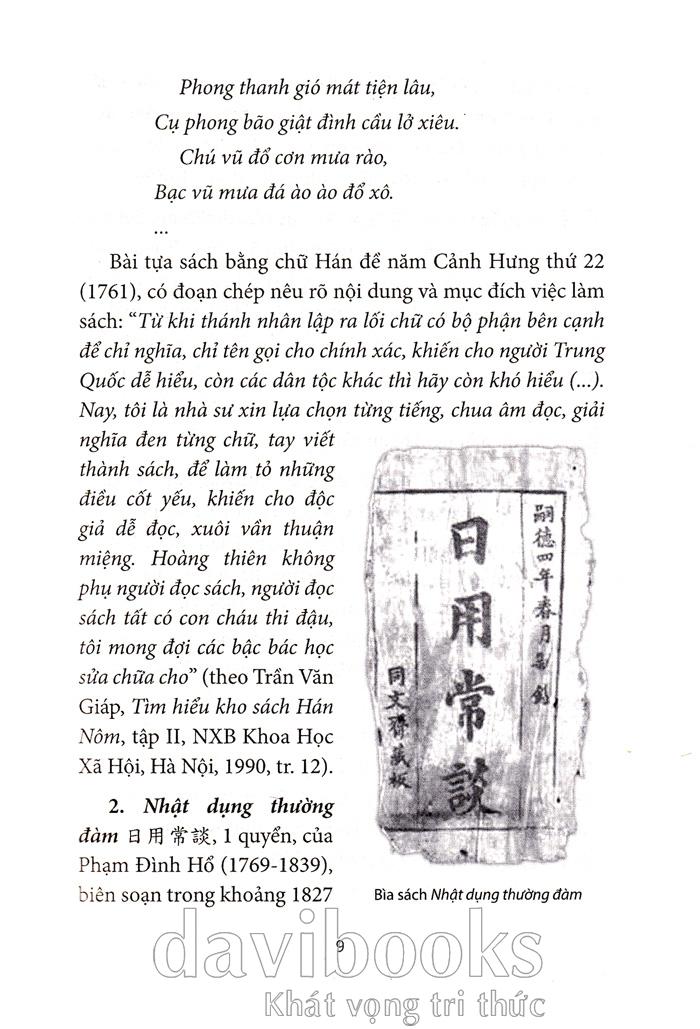 Phong thanh gió mát tiện lâu,
Cụ phong bão giật đình cầu lở xiêu.
Chú vũ đổ cơn mưa rào,
Bạc vũ mưa đá ào ào đổ xô.
...
Bài tựa sách bằng chữ Hán đề năm Cảnh Hưng thứ 22
(1761), có đoạn chép nêu rõ nội dung và mục đích việc làm
sách: “Từ khi thánh nhân lập ra lối chữ có bộ phận bên cạnh
để chỉ nghĩa, chỉ tên gọi cho chính xác, khiến cho người Trung
Quốc dễ hiểu, còn các dân tộc khác thì hãy còn khó hiểu (...).
Nay, tôi là nhà sư xin lựa chọn từng tiếng, chua âm đọc, giải
nghĩa đen từng chữ, tay viết
thành sách, để làm tỏ những
điều cốt yếu, khiến cho độc
giả dễ đọc, xuôi vần thuận
miệng. Hoàng thiên không
phụ người đọc sách, người đọc
sách tất có con cháu thi đậu,
tôi mong đợi các bậc bác học
sửa chữa cho” (theo Trần Văn
Giáp, Tìm hiểu kho sách Hán
Nôm, tập II, NXB Khoa Học
Xã Hội, Hà Nội, 1990, tr. 12).
2. Nhật dụng thường
đàm 日用常談, 1 quyển, của
Phạm Đình Hổ (1769-1839),
biên soạn trong khoảng 1827
嗣德四年春月
日用常談
同文齋藏板
Bìa sách Nhật dụng thường đàm
9
davibooks
Khát vọng tri thức